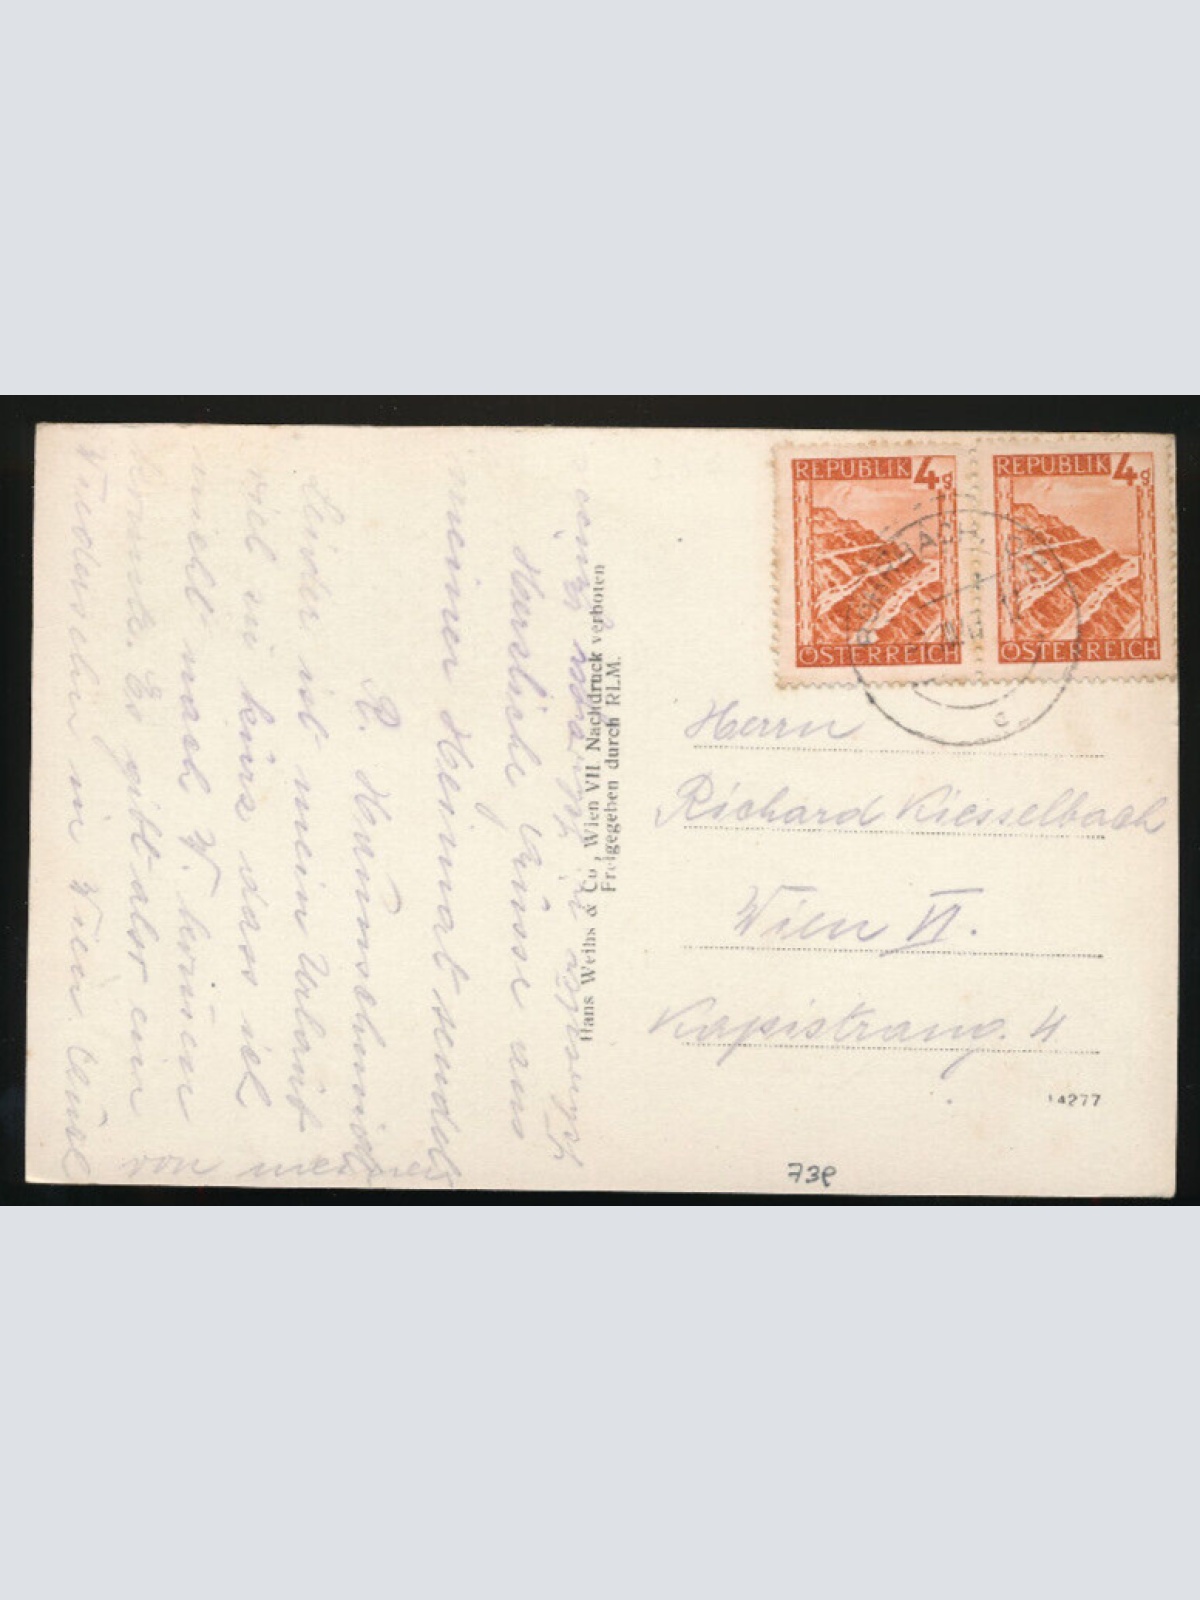 REPUBLIK 4g
ÖSTERREICH
REPUBLIK 4g
ÖSTERREICH
c
Herrn
Richard Kiesselbach
Wien VI.
Kapistrang. 4
14277
73e
Hans Weihs & Co, Wien VII Nachdruck verboten
Freigegeben durch RLM.
Herzliche Grüsse aus
meiner Heimat sendet
R.
Leider ist mein Urlaub
viel zu kurz dass ich
nicht nach W.
konnte. Es gibt aber ein
Wiedersehn in Wien.
von meiner